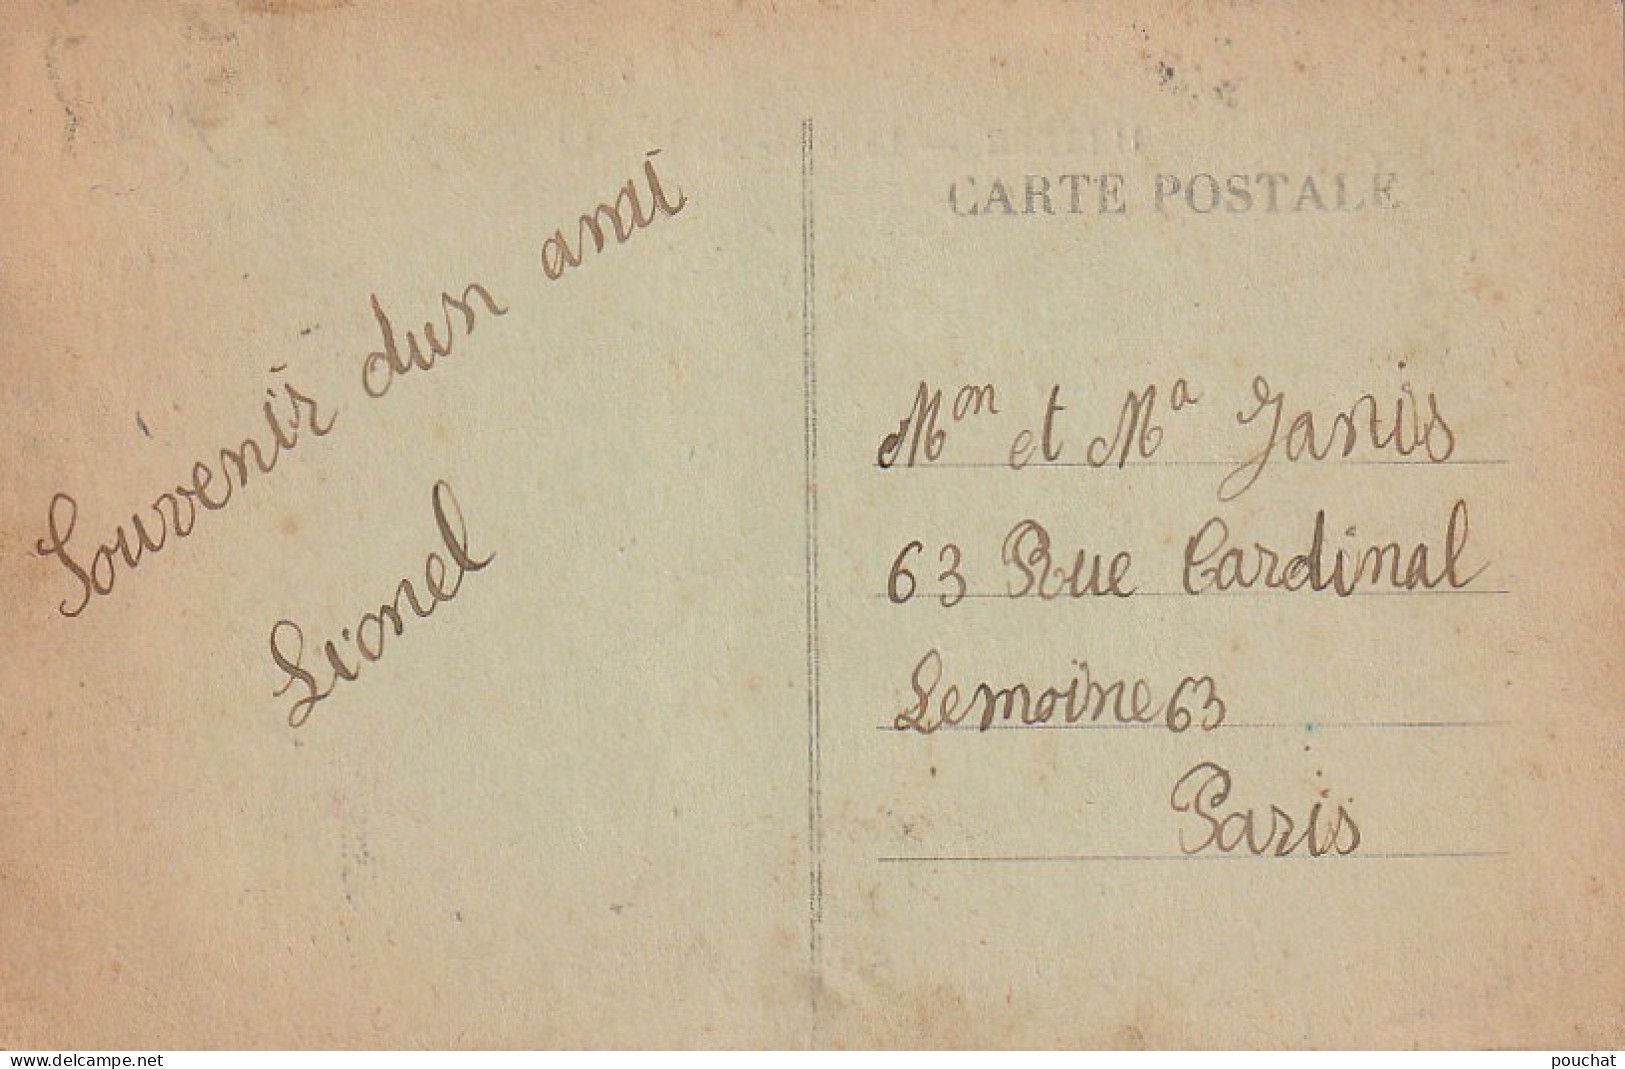 Souvenir dun ami
Lionel
CARTE POSTALE
Mon et Ma Janis
63 Rue Cardinal
Lemoine 63
Paris
www.delcampe.net
pouchat